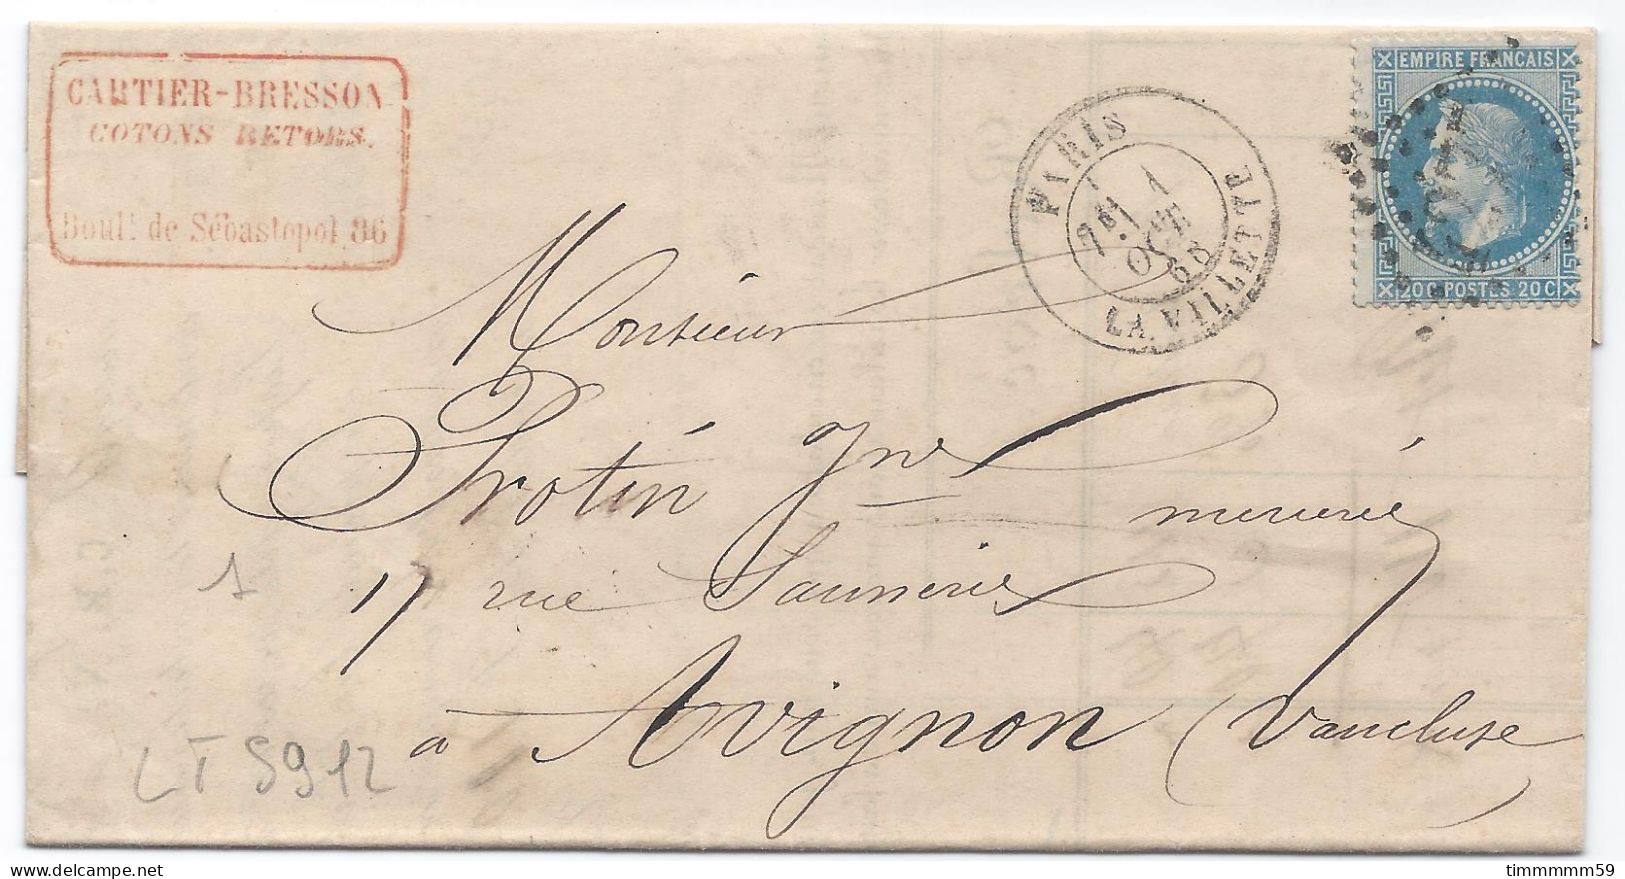 CARTIER-BRESSON
COTONS RETORS.
Boult. de Sébastopol 86
PARIS
1
OCT
68
LA VILLETTE
EMPIRE FRANCAIS
20 C POSTES 20 C
Monsieur
Protin Jne mercerie
17 rue Saunerie
à Avignon (Vaucluse
1
LT 5912
timmmmm59